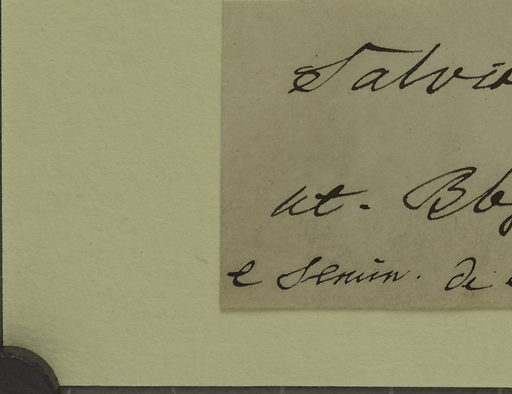 Salvia
ut. Bb
e semin. de